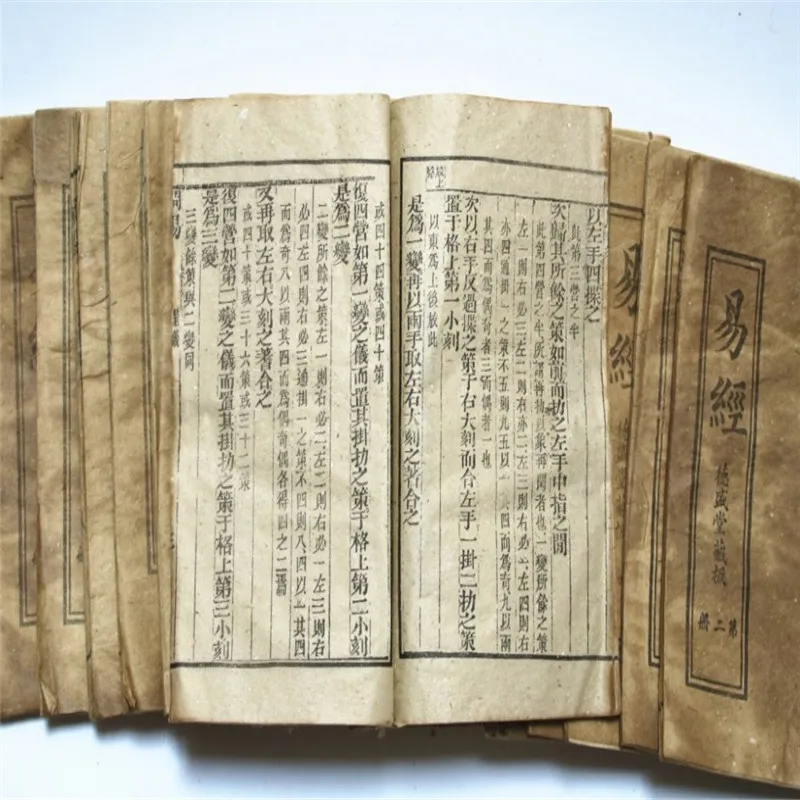 以左手四揲之
此第三營之半
次歸其所餘之策如前而扐之左手中指之間
此第四營之半所謂再扐以象再閏者也一變所餘之策
左一則右必三左二則右亦二左三則右必一左四則右
亦四通掛一之策不五則九五以一其四而爲奇九以兩
其四而爲偶奇者三而偶者一也
次以右手反過揲之策于右大刻而合左手一掛二扐之策
置于格上第一小刻
以東爲上後放此
是爲一變再以兩手取左右大刻之蓍合之
或四十四策或四十策
復四營如第一變之儀而置其掛扐之策于格上第二小刻
是爲二變
二變所餘之策左一則右必二左二則右必一左三則右
必四左四則右必三通掛一之策不四則八四以一其四
而爲奇八以兩其四而爲偶奇偶各得四之二焉
又再取左右大刻之蓍合之
或四十策或三十六策或三十二策
復四營如第二變之儀而置其掛扐之策于格上第三小刻
是爲三變
三變餘策與二變同
周易
易經
易經
德盛堂藏板
第二册